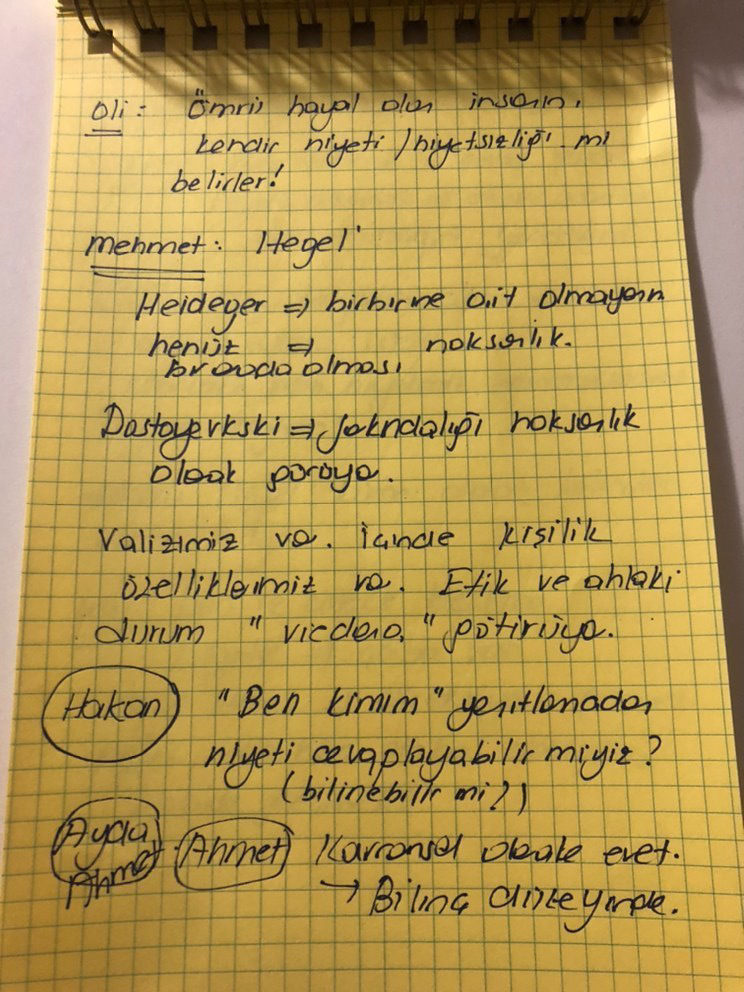 oli: Ömrü hayal olan insanın,
kendir niyeti / niyetsizliği mi
belirler!
Mehmet: Hegel'
Heideger => birbirine ait olmayanın
henüz => noksanlık.
bir arada olması
Dostoyevkski => noksanlık
olarak
Valizimiz va. içinde kişilik
özelliklerimiz va. Etik ve ahlaki
durum "
Hakan "Ben kimim" yanıtlanmadan
niyeti cevaplayabilir miyiz?
(bilinebilir mi?)
Ayda
Ahmet Ahmet olarak evet.
→ Bilinç düzeyinde.